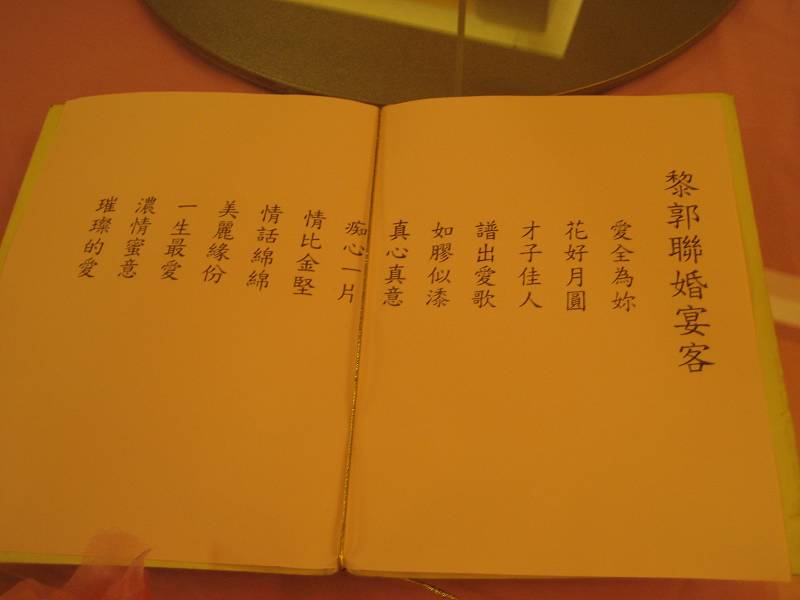 黎郭聯婚宴客
愛全為妳
花好月圓
才子佳人
譜出愛歌
如膠似漆
真心真意
痴心一片
情比金堅
情話綿綿
美麗緣份
一生最愛
濃情蜜意
璀璨的愛